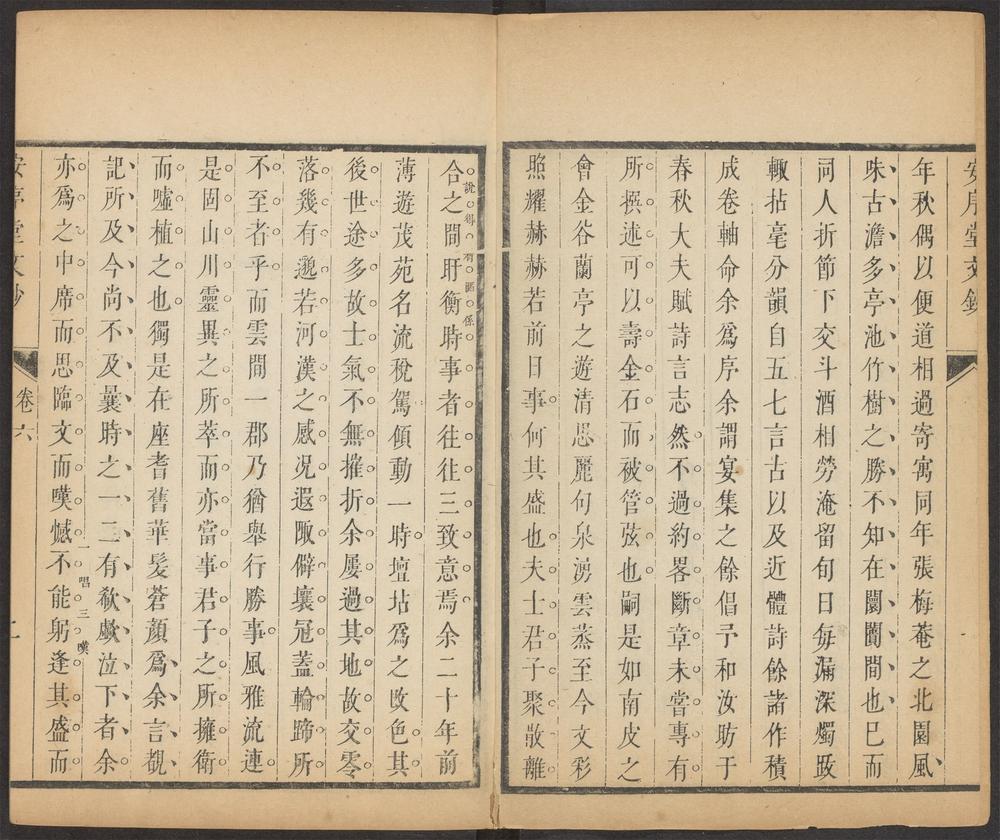 安序堂文鈔
年秋偶以便道相過寄寓同年張梅菴之北園風
味古澹多亭池竹樹之勝不知在闤闠間也已而
同人折節下交斗酒相勞淹留旬日每漏深燭跋
輙拈毫分韻自五七言古以及近體詩餘諸作積
成卷軸命余爲序余謂宴集之餘倡予和汝昉于
春秋大夫賦詩言志然不過約畧斷章未嘗專有
所撰述可以壽金石而被管弦也嗣是如南皮之
會金谷蘭亭之遊清思麗句泉湧雲蒸至今文彩
照耀赫赫若前日事何其盛也夫士君子聚散離
合之間盱衡時事者往往三致意焉余二十年前
說得有關係
薄遊茂苑名流稅駕傾動一時壇坫爲之改色其
後世途多故士氣不無摧折余屢過其地故交零
落幾有邈若河漢之感况遐陬僻壤冠蓋輪蹄所
不至者乎而雲間一郡乃猶舉行勝事風雅流連
是固山川靈異之所萃而亦當事君子之所擁衛
而噓植之也獨是在座耆舊華髮蒼顏爲余言覩
記所及今尚不及曩時之一二有欷歔泣下者余
亦爲之中席而思臨文而嘆憾不能躬逢其盛而
一唱三嘆
安序堂文鈔
卷六
二